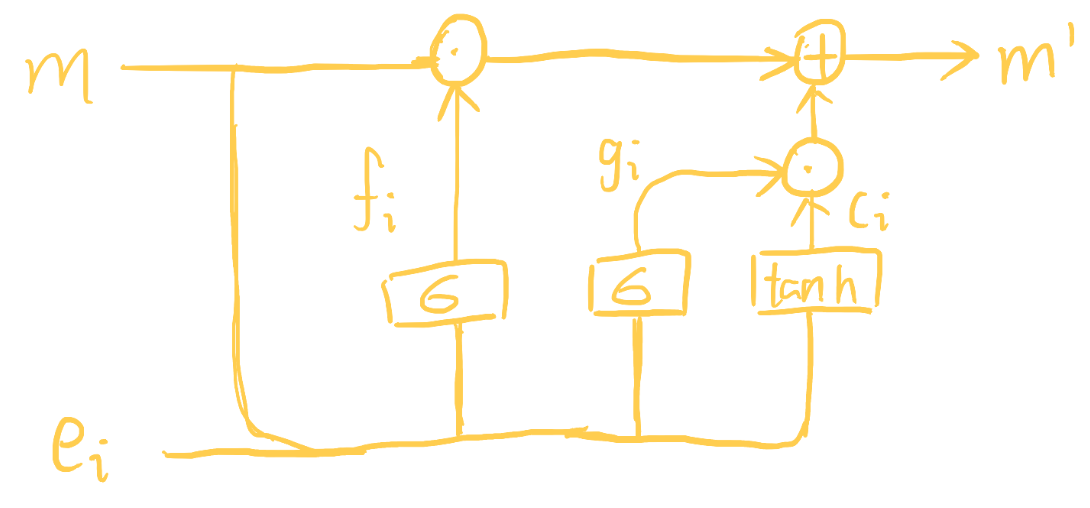 m
m'
f_i
g_i
c_i
σ
σ
tanh
e_i